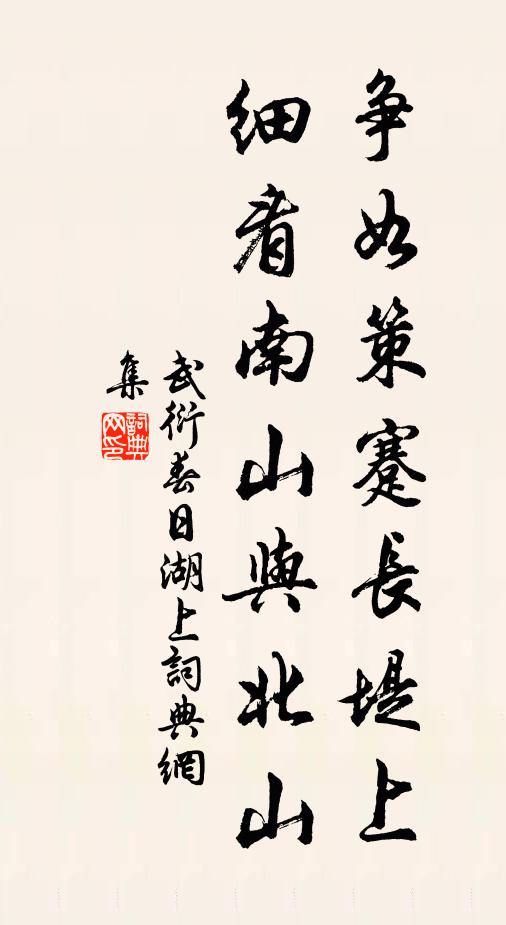 争如策蹇長堤上
細看南山與北山
武衍春日湖上詞典網
集
詞典
网印